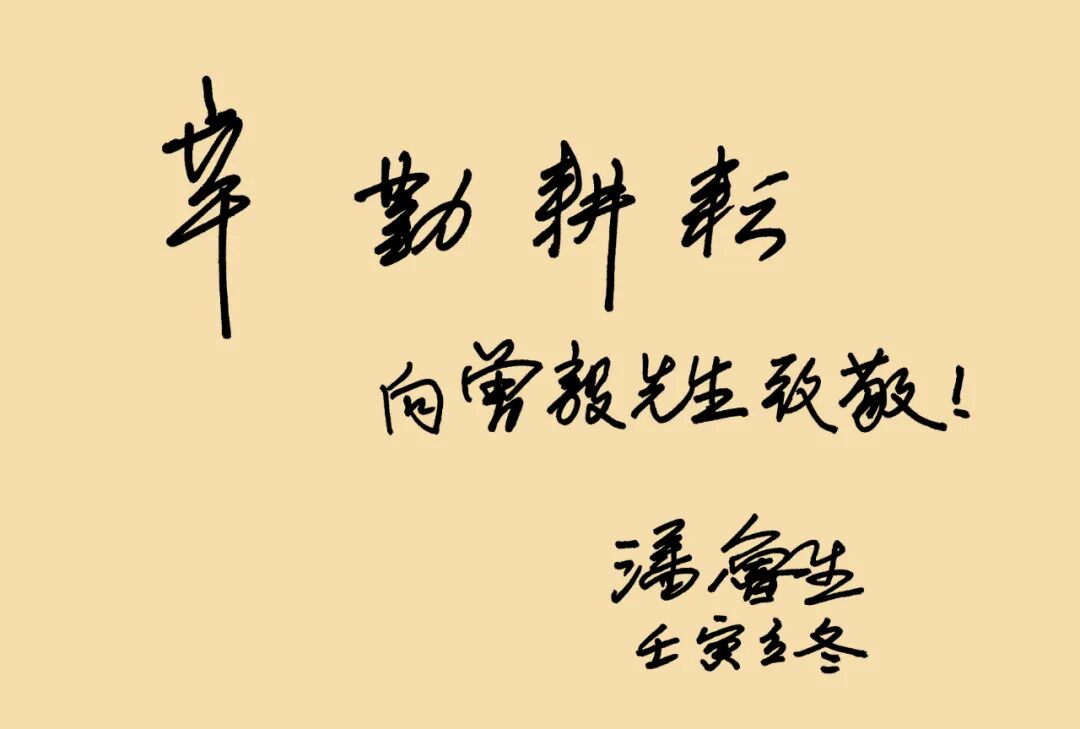 辛勤耕耘
向曾毅先生致敬！
潘鲁生
壬寅立冬